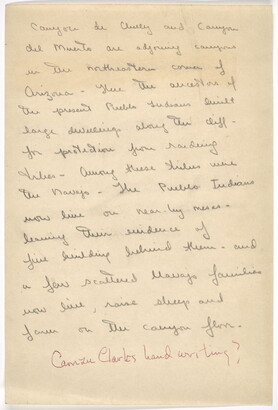 Canyon de Chelly and Canyon
del Muerto are adjoining canyons
in the northeastern corner of
Arizona - Here the ancestors of
the present Pueblo Indians built
large dwellings along the cliff -
for protection from raiding
tribes - Among these tribes were
the Navajo - The Pueblo Indians
now live on near-by mesas -
leaving their evidence of
fine building behind them - and
a few scattered Navajo families
now live, raise sheep and
farm on the canyon floor.
Clark's handwriting?